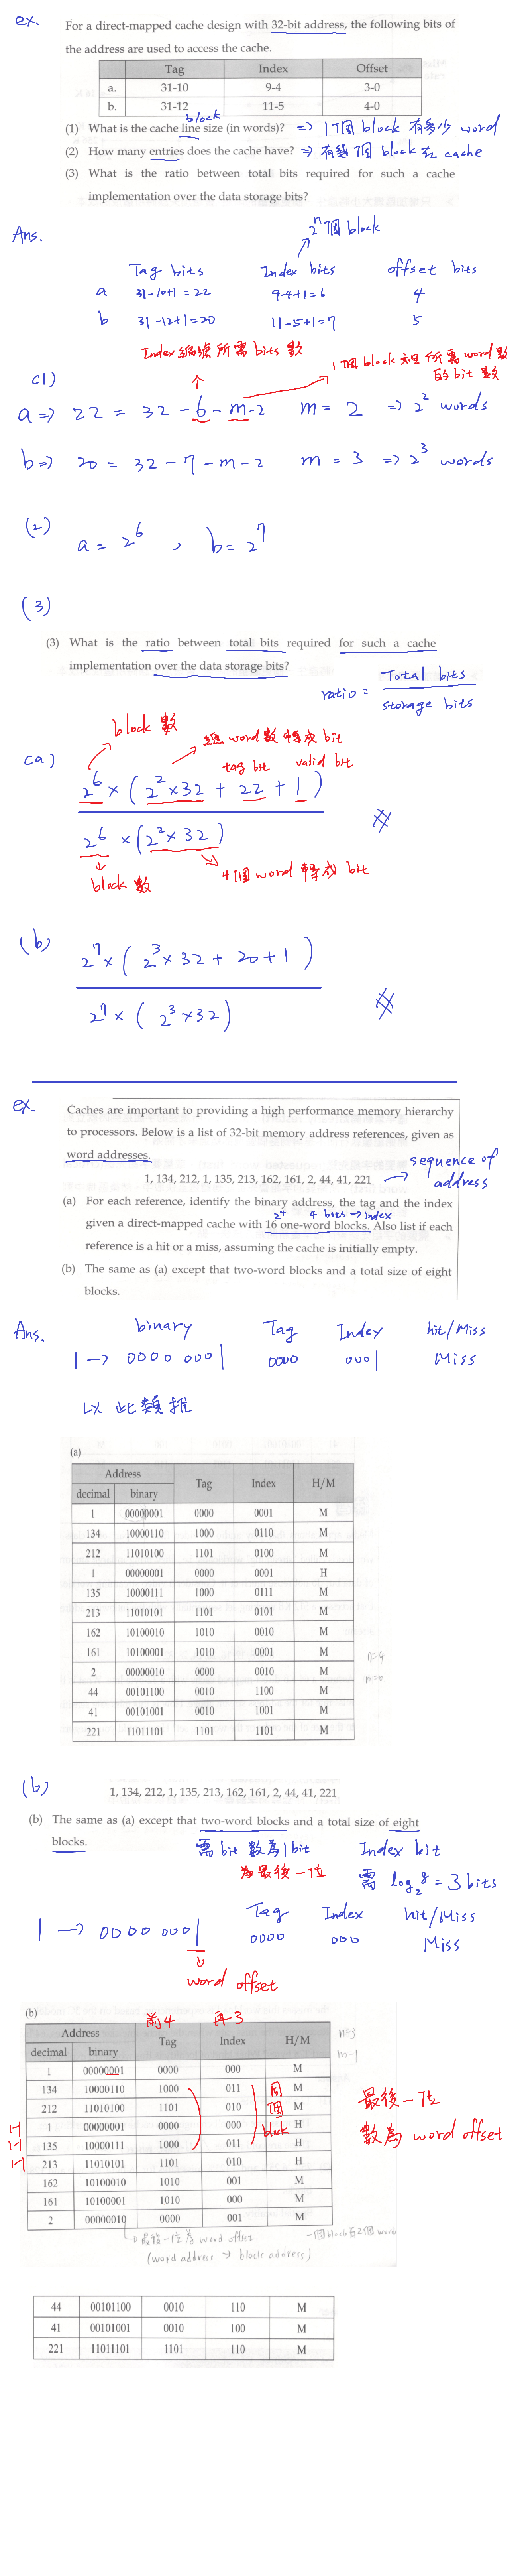 ex.
For a direct-mapped cache design with 32-bit address, the following bits of
the address are used to access the cache.
Tag Index Offset
a. 31-10 9-4 3-0
b. 31-12 11-5 4-0
block
(1) What is the cache line size (in words)? => 1個block有多少word
(2) How many entries does the cache have? => 有幾個block在cache
(3) What is the ratio between total bits required for such a cache
implementation over the data storage bits?
Ans.
2^n個block
Tag bits Index bits offset bits
a 31-10+1=22 9-4+1=6 4
b 31-12+1=20 11-5+1=7 5
Index 編號所需bits數
1個block裡所需word數
的bit數
(1)
a => 22 = 32-6-m-2 m = 2 => 2^2 words
b => 20 = 32-7-m-2 m = 3 => 2^3 words
(2)
a = 2^6 , b = 2^7
(3)
(3) What is the ratio between total bits required for such a cache
implementation over the data storage bits?
ratio = Total bits
storage bits
block數
總word數轉成bit
(a)
tag bit valid bit
2^6 × (2^2×32 + 22 + 1)
2^6 × (2^2×32)
block數
4個word轉成bit
(b)
2^7 × (2^3×32 + 20 + 1)
2^7 × (2^3×32)
ex.
Caches are important to providing a high performance memory hierarchy
to processors. Below is a list of 32-bit memory address references, given as
word addresses.
1, 134, 212, 1, 135, 213, 162, 161, 2, 44, 41, 221 → sequence of
address
(a) For each reference, identify the binary address, the tag and the index
2^4 4 bits → index
given a direct-mapped cache with 16 one-word blocks. Also list if each
reference is a hit or a miss, assuming the cache is initially empty.
(b) The same as (a) except that two-word blocks and a total size of eight
blocks.
Ans.
binary Tag Index hit/Miss
1 → 0000 0001 0000 0001 Miss
以此類推
(a)
Address Tag Index H/M
decimal binary
1 00000001 0000 0001 M
134 10000110 1000 0110 M
212 11010100 1101 0100 M
1 00000001 0000 0001 H
135 10000111 1000 0111 M
213 11010101 1101 0101 M
162 10100010 1010 0010 M
161 10100001 1010 0001 M
2 00000010 0000 0010 M
44 00101100 0010 1100 M
41 00101001 0010 1001 M
221 11011101 1101 1101 M
n=4
m=0
(b)
1, 134, 212, 1, 135, 213, 162, 161, 2, 44, 41, 221
(b) The same as (a) except that two-word blocks and a total size of eight
blocks.
需bit數為1bit
為最後一位
Index bit
需 log₂8 = 3 bits
Tag Index hit/Miss
1 → 0000 0001 0000 000 Miss
word offset
(b)
前4 再3
Address Tag Index H/M
decimal binary
n=3
m=1
1 00000001 0000 000 M
134 10000110 1000 011 M
212 11010100 1101 010 M
H 1 00000001 0000 000 H
H 135 10000111 1000 011 H
H 213 11010101 1101 010 H
162 10100010 1010 001 M
161 10100001 1010 000 M
2 00000010 0000 001 M
同
個
block
最後一位
數為word offset
最後一位為word offset.
(word address → block address)
一個block有2個word
44 00101100 0010 110 M
41 00101001 0010 100 M
221 11011101 1101 110 M